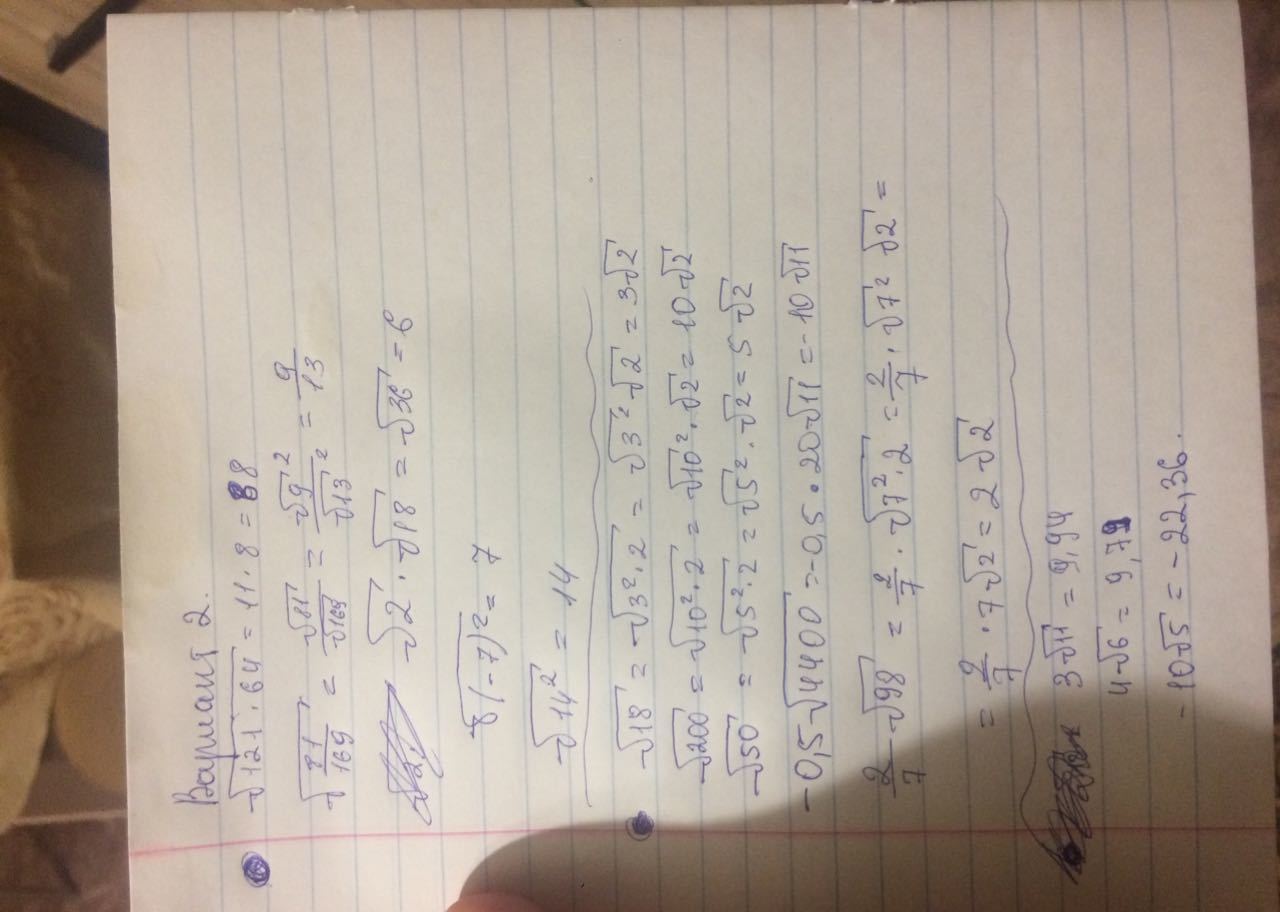 Вариант 2.
√121·64 = 11·8 = 88
√81/169 = √81/√169 = √9²/√13² = 9/13
√2·√18 = √36 = 6
√(-7)² = 7
√14² = 14
√18 = √3²·2 = √3²√2 = 3√2
√200 = √10²·2 = √10²·√2 = 10√2
√50 = √5²·2 = √5²·√2 = 5√2
-0,5√4400 = -0,5·20√11 = -10√11
2/7√98 = 2/7·√7²·2 = 2/7·√7²√2 =
= 2/7·7√2 = 2√2
3√11 = 9,94
4√6 = 9,79
-10√5 = -22,36.